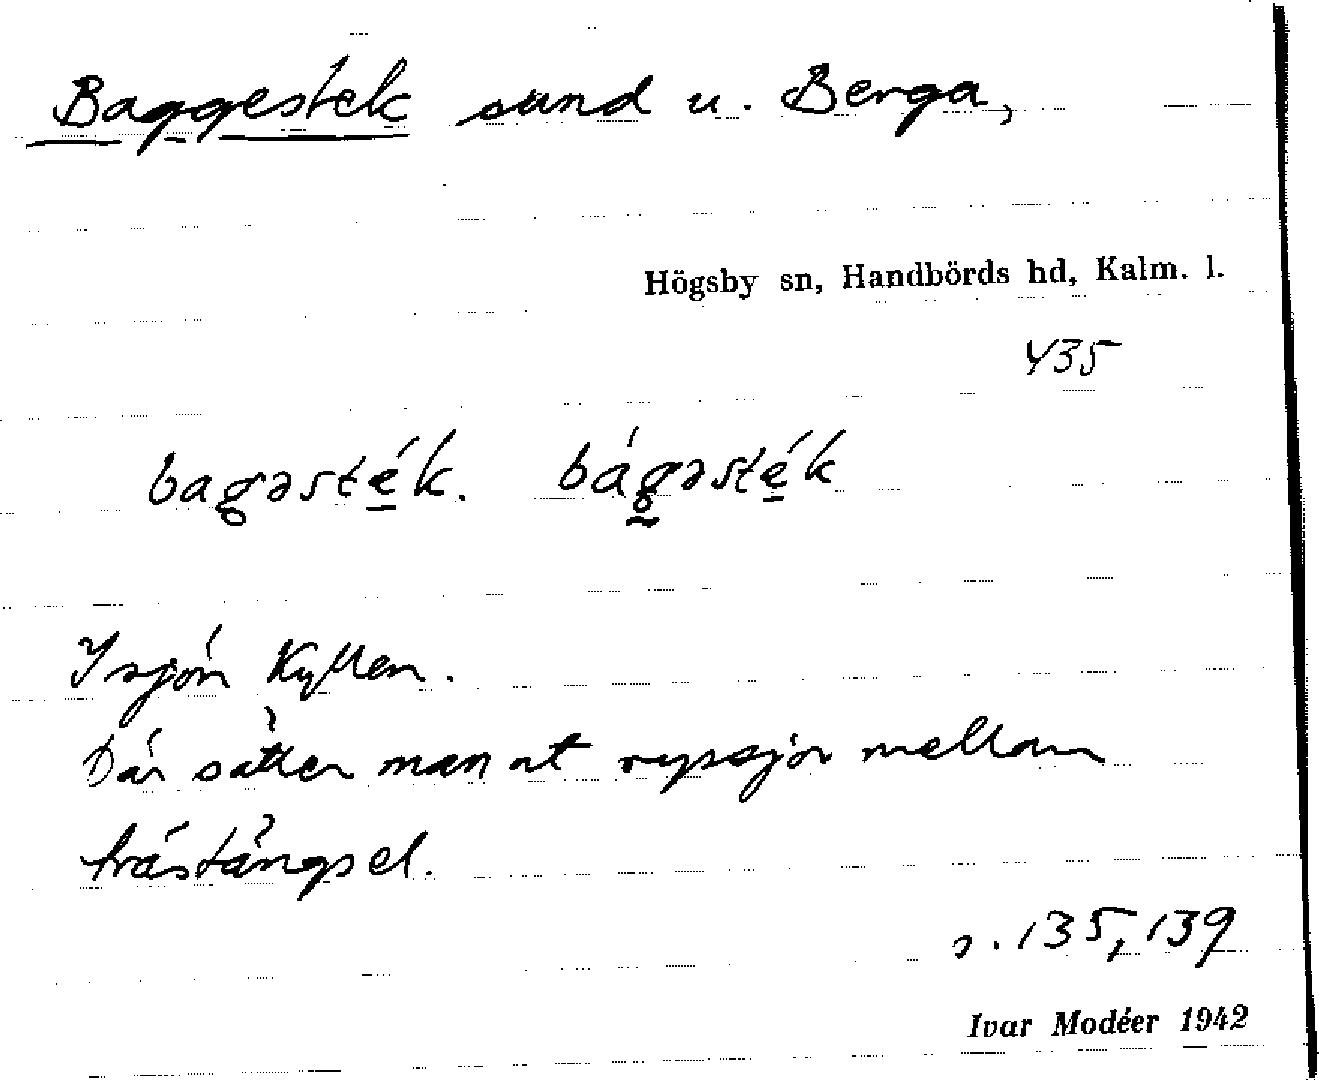 Baggestek sund u. Berga,
Högsby sn, Handbörds hd, Kalm. l.
435
bagəsték. bágəsték
I sjön Kyllen.
Där sätter man ut ryssjor mellan
trästängsel.
s. 135, 139
Ivar Modéer 1942